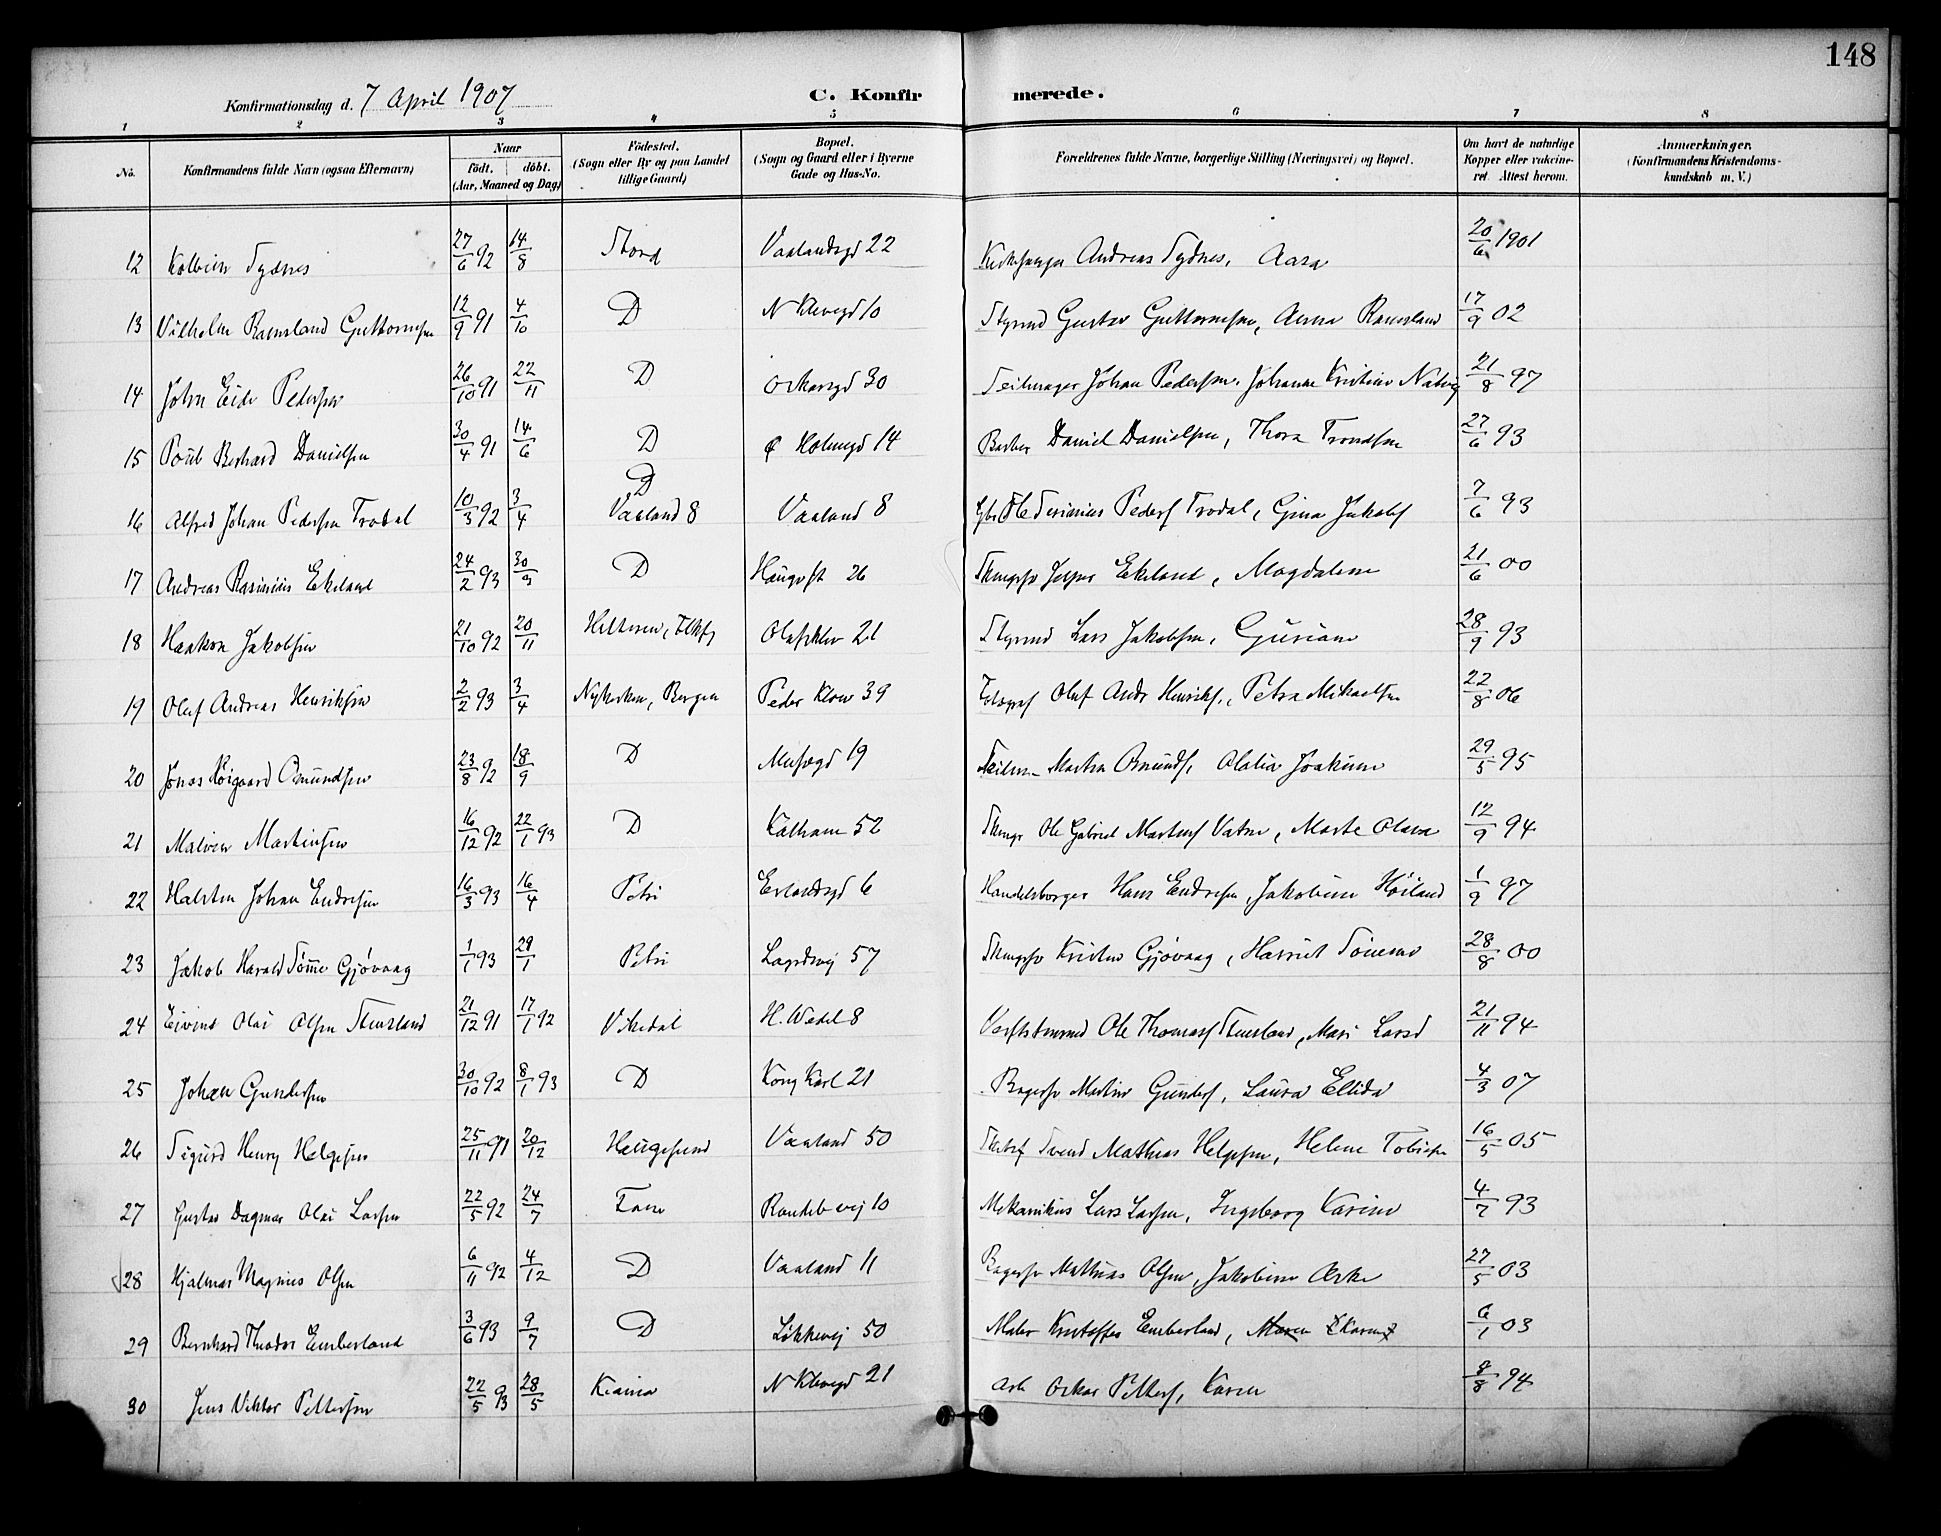 148
Konfirmationsdag d. 7 April 1907 C. Konfir merede.
1 2 3 4 5 6 7 8
No. Konfirmandens fulde Navn (ogsaa Efternavn) Naar födt. döbt. (Aar, Maaned og Dag) Födested. (Sogn eller By og paa Landet tillige Gaard) Bopæl. (Sogn og Gaard eller i Byerne Gade og Hus-No. Forældrenes fulde Navne, borgerlige Stilling (Næringsvei) og Bopæl. Om havt de naturlige Kopper eller vaccineret. Attest herom. Anmærkninger. (Konfirmandens Kristendomskundskab m. V.)
12 Kolbein Sydnes 27/6 92 14/8 Stord Vaalandsgd 22 Andreas Sydnes, Aasa 20/6 1901
13 Vilhelm Ramsland Guttormsen 12/9 91 4/10 D N Klevegd 10 Styrmd Gustav Guttormsen, Anna Ramsland 17/9 02
14 John Eide Pedersen 26/10 91 22/11 D Oskarsgd 30 Seilmager Johan Pedersen, Johanne Kristine Natvig 21/8 97
15 Poul Berhard Danielsen 30/4 91 14/6 D Ø Holmegd 14 Daniel Danielsen, Thora Trondsen 27/6 93
16 Alfred Johan Pedersen Trodal 10/3 92 3/4 D Vaaland 8 Vaaland 8 Ole Severinius Peders Trodal, Gina Jakobs 7/6 93
17 Andreas Rasinius Ekeland 24/2 93 30/3 D Haugvst 26 Jesper Ekeland, Magdalene 21/6 00
18 Haakon Jakobsen 21/10 92 20/11 Olafsklev 21 Styrmd Lars Jakobsen, Guriane 28/9 93
19 Oluf Andreas Henriksen 2/2 93 3/4 Nykirken, Bergen Peder Klow 39 Fotograf Oluf Andr Henriks, Petra Mikaelsen 22/8 06
20 Jonas Höigaard Omundsen 23/8 92 18/9 D Musegd 19 Martin Omunds, Olalia Joakime 29/5 95
21 Malvin Martinsen 16/12 92 22/1 93 D Kalham 52 Ole Gabriel Martins Vatne, Marte Olava 12/9 94
22 Halsten Johan Endresen 16/3 93 16/4 Petri Erlandsgd 6 Handelsborger Hans Endresen, Jakobine Höiland 1/9 97
23 Jakob Harald Tömme Gjövaag 1/1 93 29/1 Petri Lagårdsvej 57 Kristen Gjövaag, Harriet 28/8 00
24 Eivind Olai Olsen Stensland 21/12 91 17/1 92 Vikedal H. Wedel 8 Verftstømmd Ole Thomass Stensland, Mari Larsd 21/11 94
25 Johan Gundersen 30/10 92 8/1 93 D Kong Karl 21 Bagersv Martin Gunders, Laura Ellida 4/3 07
26 Sigurd Henry Helgesen 25/11 91 20/12 Haugesund Vaaland 50 Svend Mathias Helgesen, Helene Tobiesen 16/5 05
27 Gustav Dagmar Olai Larsen 22/5 92 24/7 Randebvej 10 Mekanikus Lars Larsen, Ingeborg Karine 4/7 93
28 Hjalmar Magnus Olsen 6/11 92 4/12 D Vaaland 11 Bagersv Mathias Olsen, Jakobine Aske 27/5 03
29 Bernhard Theodor Emberland 3/6 93 9/7 D Løkkevej 50 Maler Kristoffer Emberland, Maren Karen 6/1 03
30 Jens Viktor Pettersen 22/5 93 28/5 N Klevegd 21 Arb Oskar Petters, Karen 8/8 94